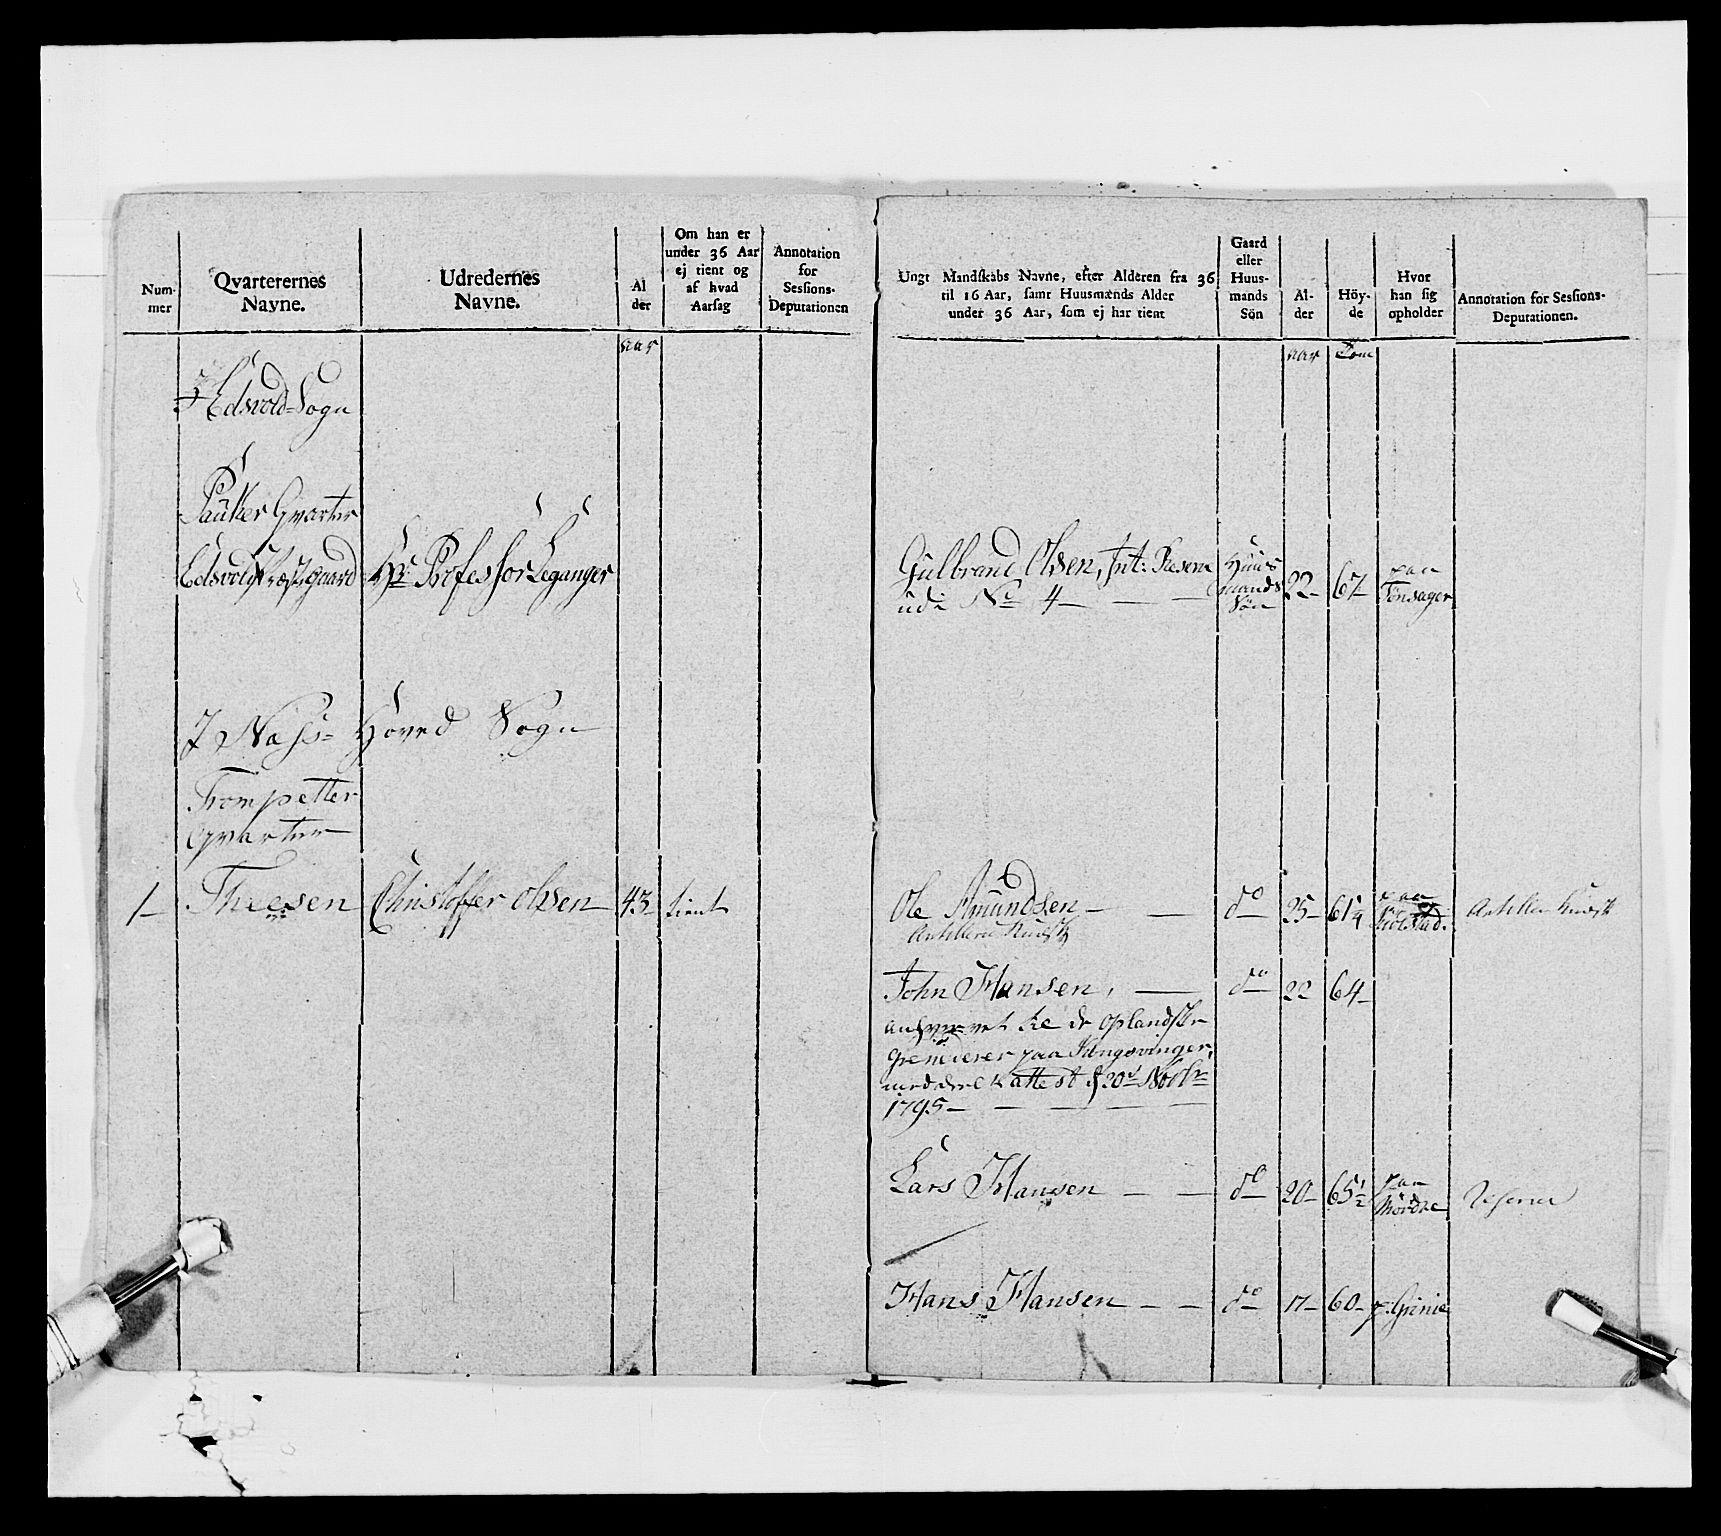 Num-
mer
Qvarterernes
Navne.
Udredernes
Navne.
Al
der
Om han er
under 36 Aar
ej tient og
af hvad
Aarsag
Annotation
for
Sessions-
Deputationen
Ungt Mandskabs Navne, efter Alderen fra 36
til 16 Aar, samt Huusmænds Alder
under 36 Aar, som ej har tient
Gaard
eller
Huus-
mands
Sön
Al-
der
Höy-
de
Hvor
han sig
opholder
Annotation for Sessions-
Deputationen.
aar
aar
Tom
I Edsvold Sogn
Pauker Qvarter
Edsvolds Præstegaard Hr Professor Leganger
Gulbrand Olsen, Int: Reserve
udi No 4
Huus
mands
Sön
22 67
paa
Tönsager
I Næss- Hoved Sogn
Trompetter
Qvarteer
1 Theesen Christoffer Olsen 43 tient
Ole Amundsen do 25 61 1/4
paa
Holstad.
Artillerie Kudsk
Artillerie Kudsk
John Hansen, do 22 64
anhvervet til de Oplandske
Grenaderer paa Kongsvinger,
meddeelt attest d 20de Novbr
1795
Lars Hansen do 20 65 1/2
paa
Mördre
Reserve
Hans Hansen do 17 60 p. Grinie